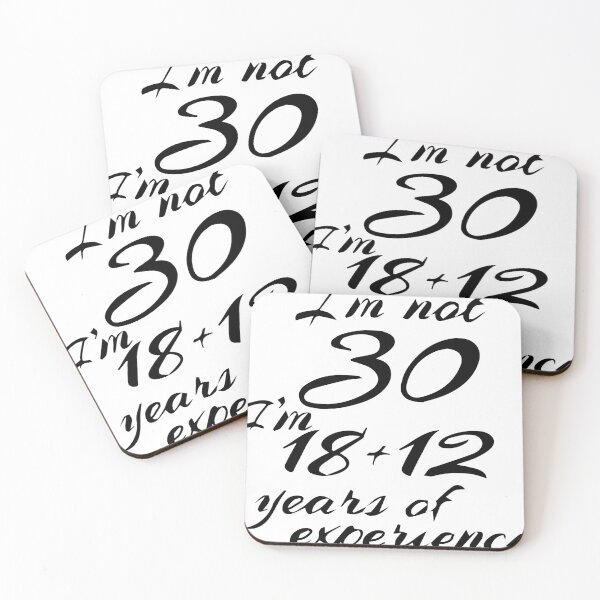 I'm not
30
I'm
12
I'm not
30
I'm
18+12
experienc
I'm not
30
I'm
18+12
years
I'm not
30
I'm
18+12
years of
experienc